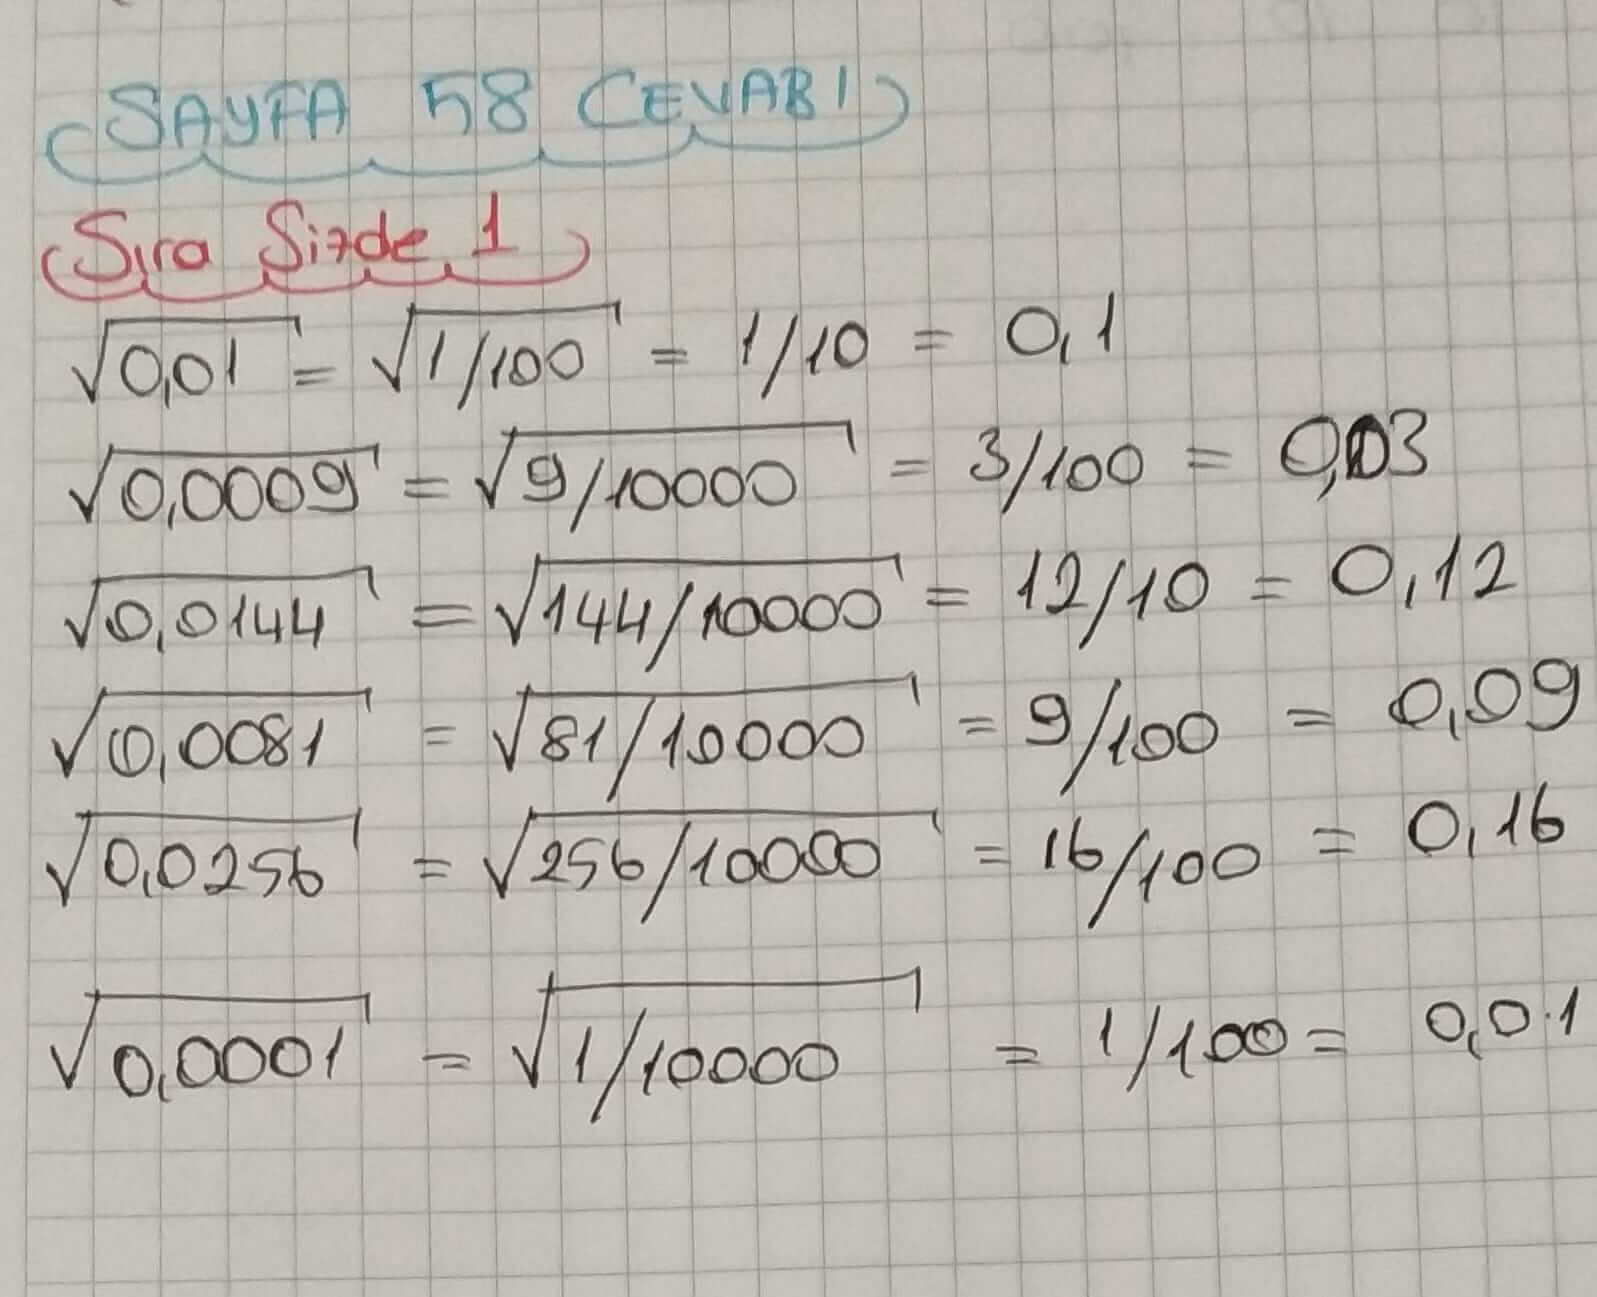 SAYFA 58 CEVABI
Sıra Sizde 1
√0,01 = √1/100 = 1/10 = 0,1
√0,0009 = √9/10000 = 3/100 = 0,03
√0,0144 = √144/10000 = 12/10 = 0,12
√0,0081 = √81/10000 = 9/100 = 0,09
√0,0256 = √256/10000 = 16/100 = 0,16
√0,0001 = √1/10000 = 1/100 = 0,01